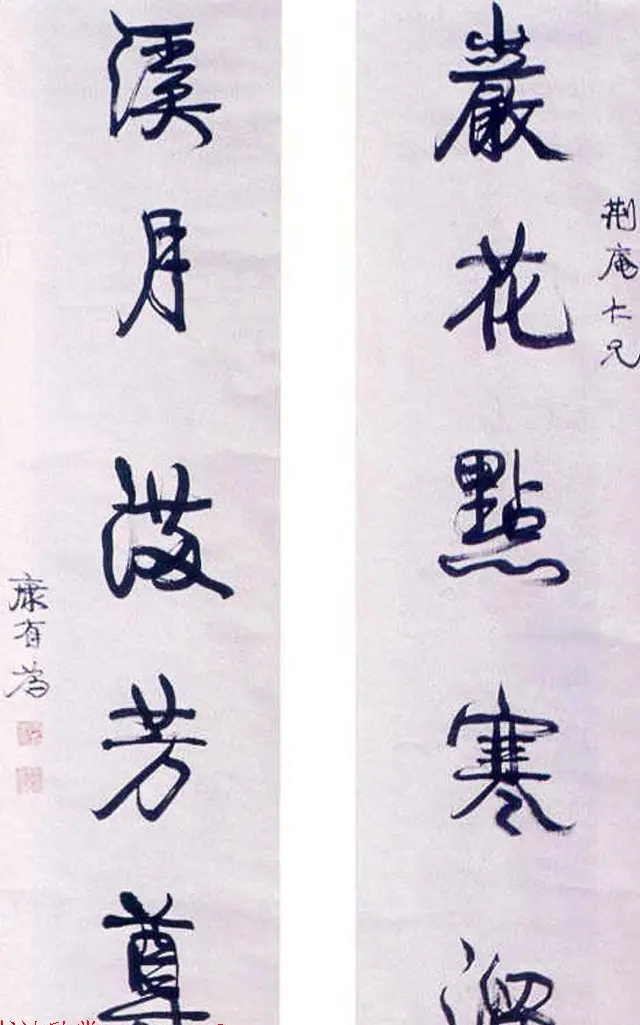 荆庵仁兄
巖花點寒
溪月芳尊
康有為